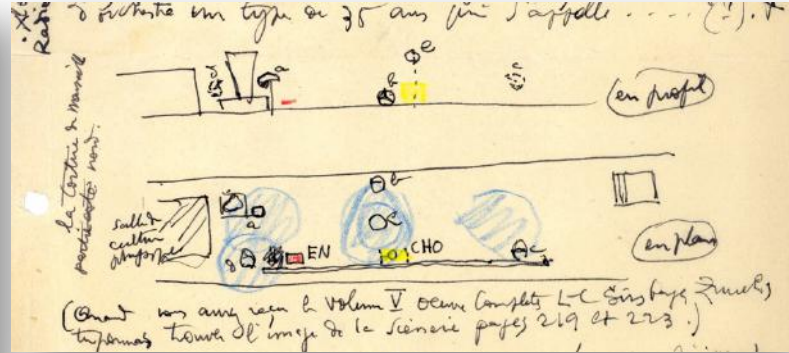 d'orchestre un type de 35 ans qui s'appelle .... (!).
Radi
la toiture de Marseille
nord.
a
e
b
c
en profil
salle de
culture
physique
b
a
c
EN
CHO
en plan
(Quand vous aurez reçu le volume V Oeuvre Complète L-C Girsberger Zurich,
trouver l'image de la scénerie pages 219 et 223.)